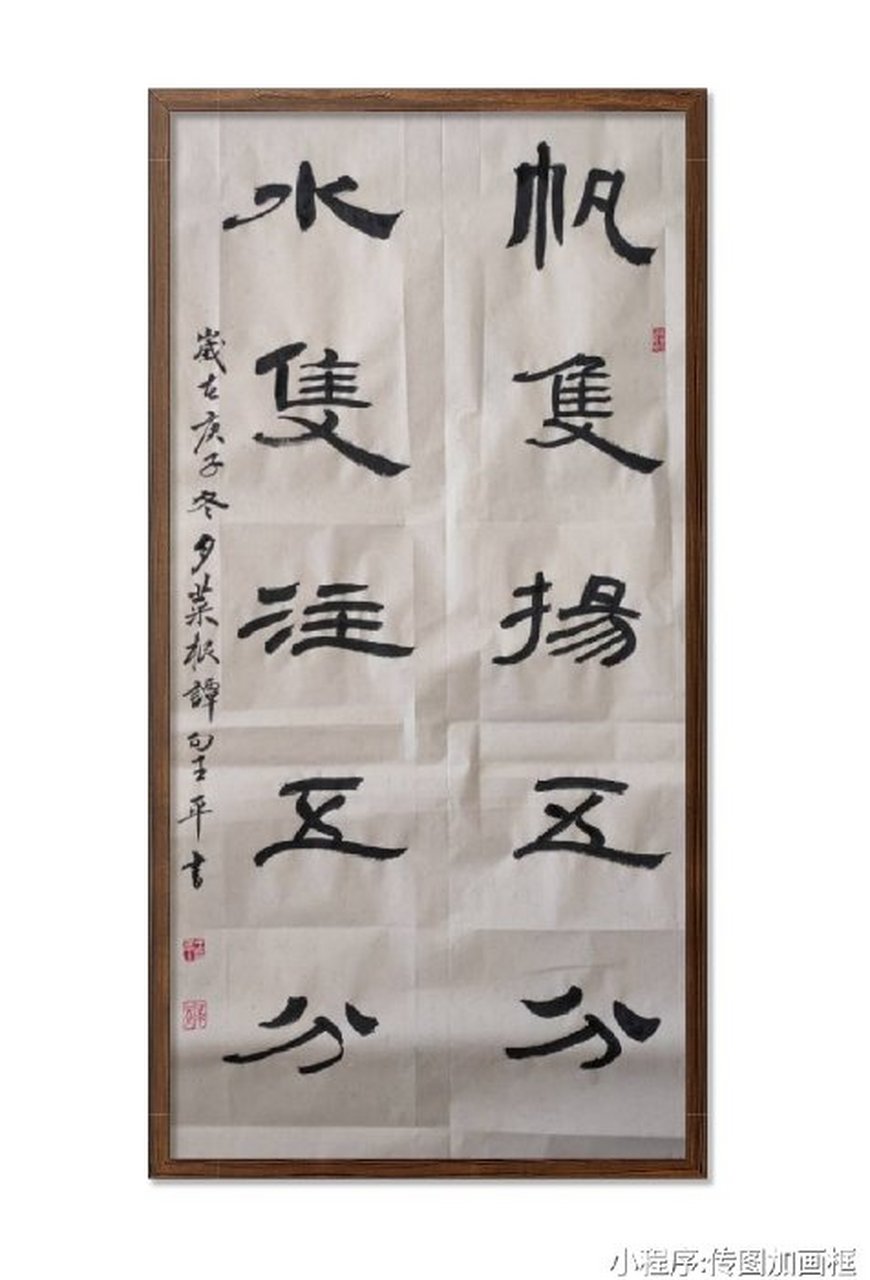 帆隻揚五分
水隻注五分
歲在庚子冬夕菜根譚句王平書
小程序:传图加画框